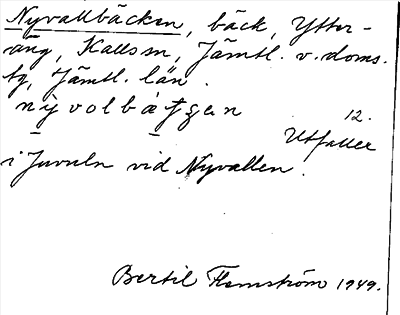 Nyvallbäcken, bäck, Ytter-
äng, Kallsn, Jämtl. v. doms.
tg, Jämtl. län.
nỳvolbàƫʂen 12.
Utfaller
i Juvuln vid Nyvallen.
Bertil Flemström 1949.